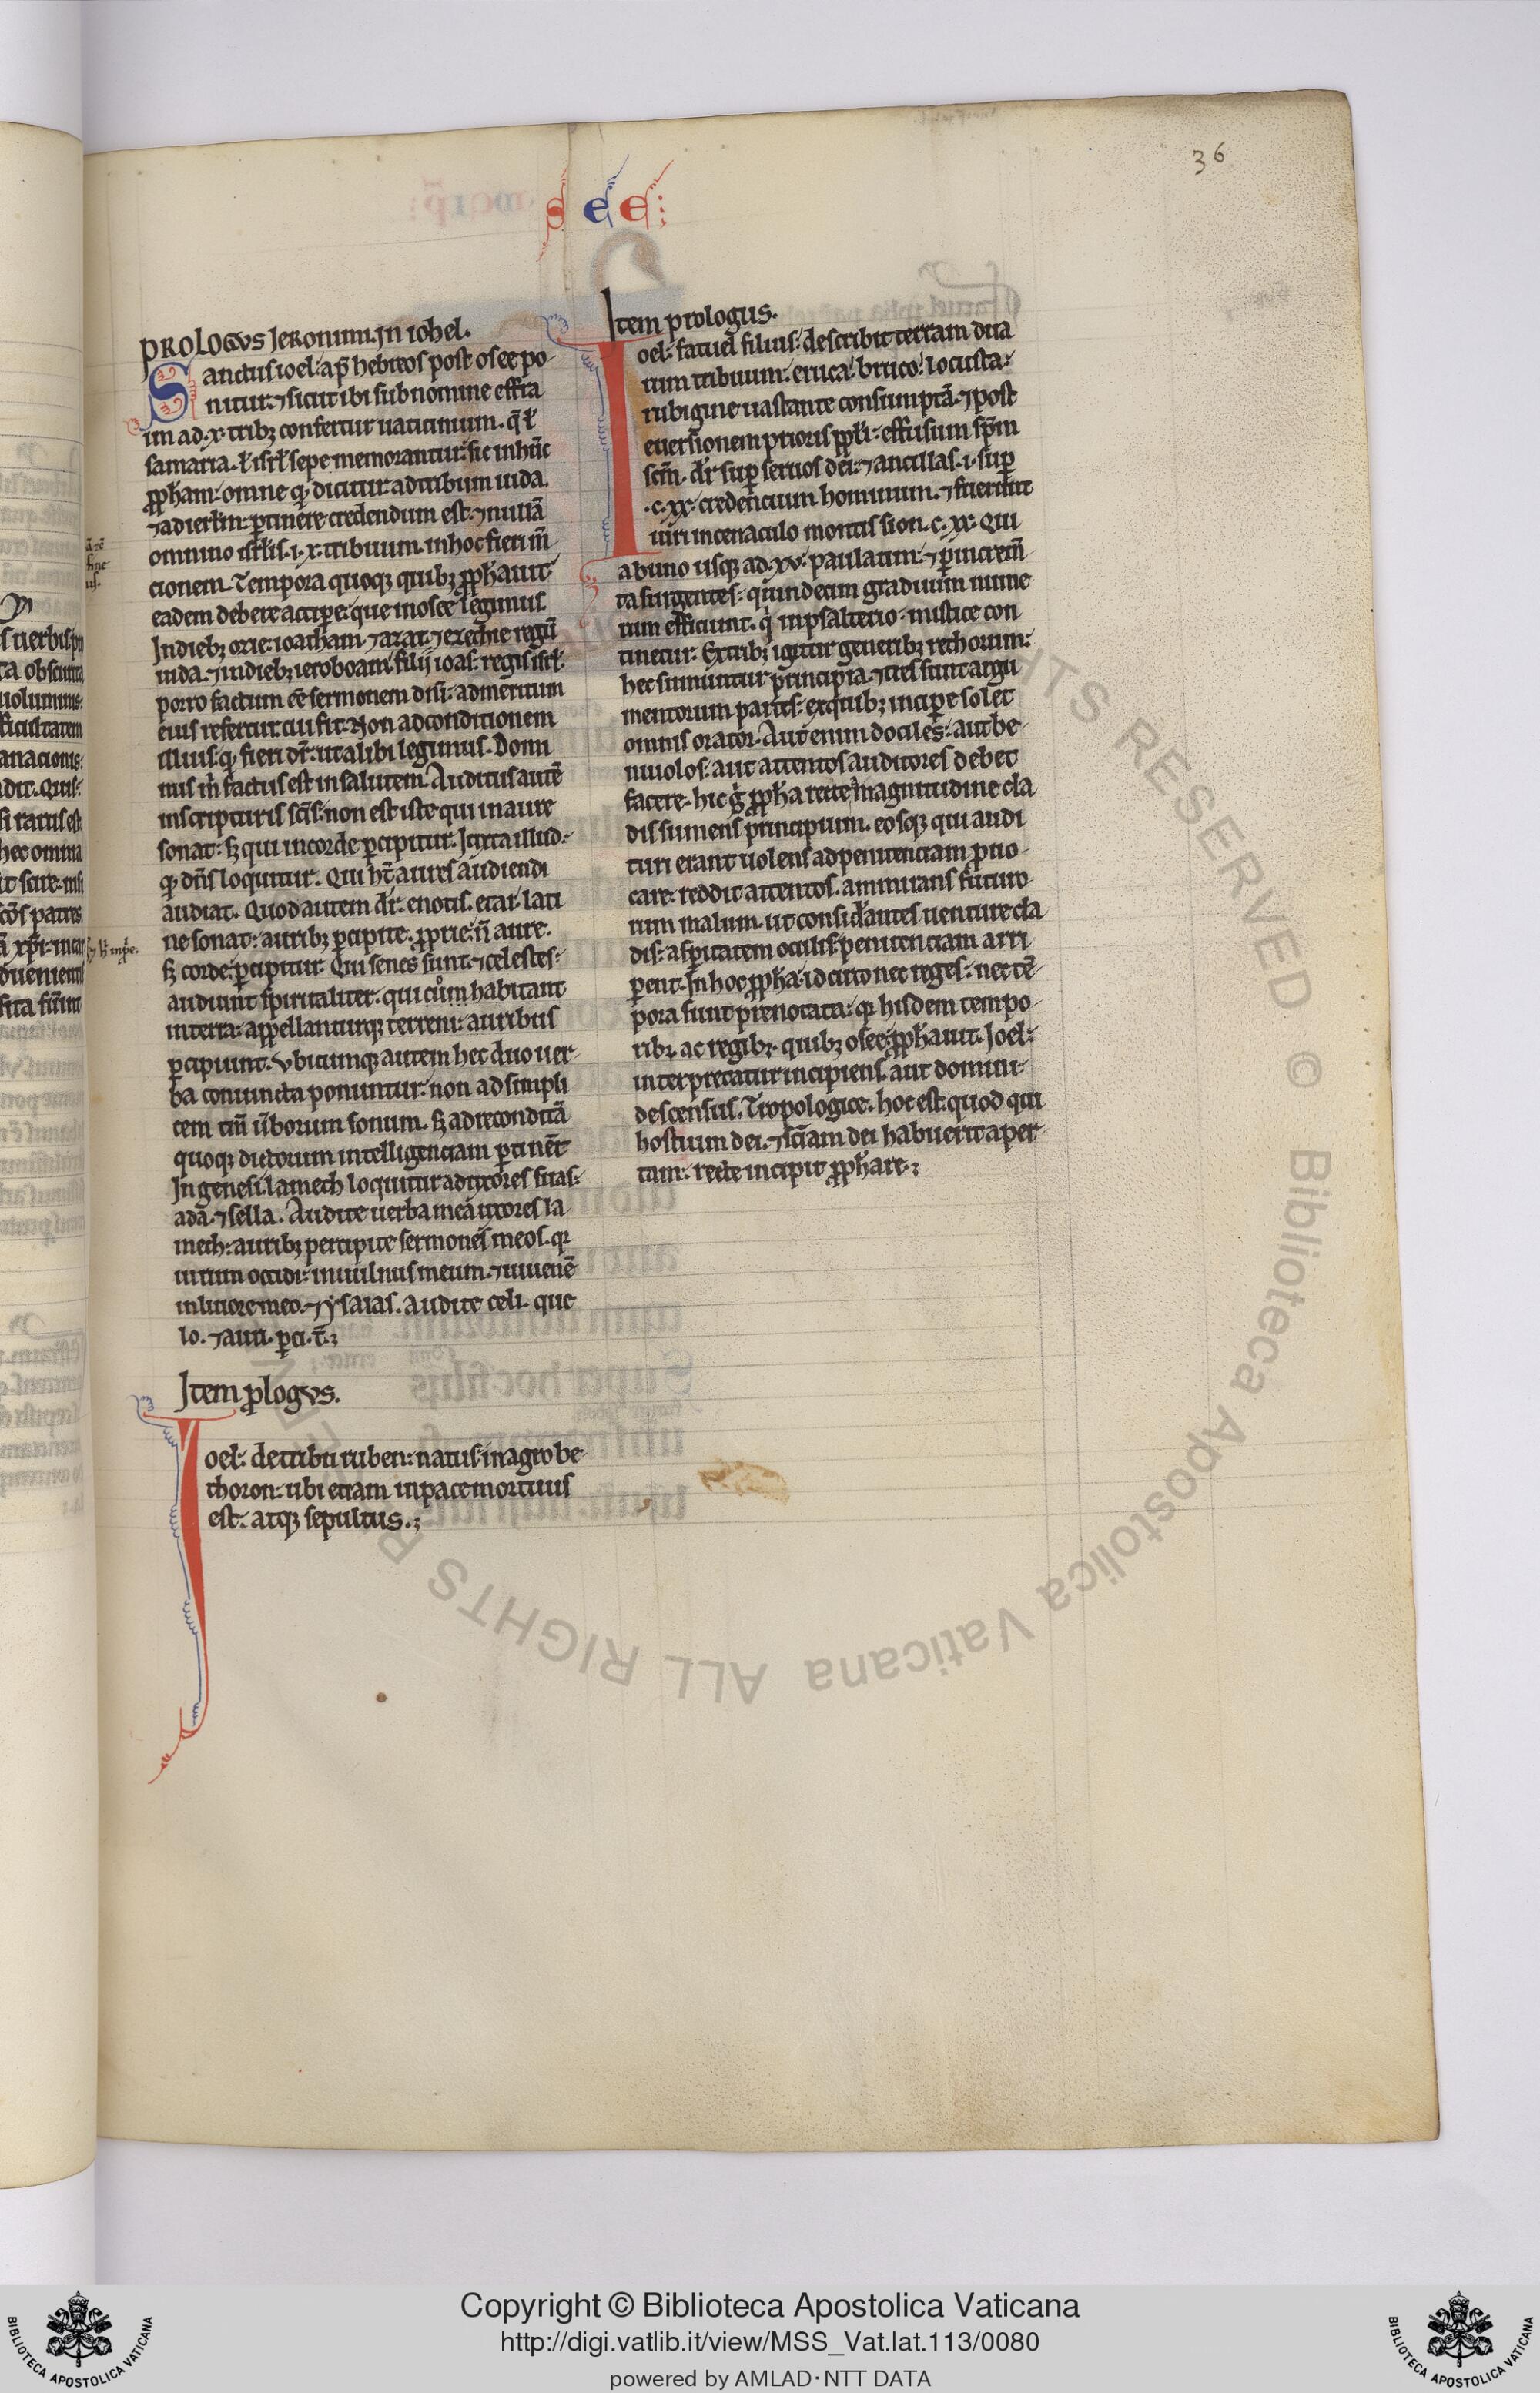 36
s e e :
PROLOGVS Jeronimi. Jn iohel.
Sanctus ioel: ap̄ hebreos post osee po-
nitur: ⁊ sicut ibi sub nomine effra
im ad .x. tribꝫ confertur uaticinium. q̄ ꝉ
samaria. ꝉ isrł sepe memorantur: sic in hūc
ꝓpham: omne qꝫ dicitur: ad tribum iuda.
⁊ ad ierłm: ꝑtinere credendum est. ⁊ nullā
omnino isrłis .i. x. tribuum. in hoc fieri m̄-
cionem. Tempora quoqꝫ quibꝫ ꝓphauit
eadem debere accipe: que in osee legimus.
Jn diebꝫ ozie: ioatham. ⁊ azat. ⁊ ezechie regū
iuda. ⁊ in diebꝫ ieroboam filij ioas: regis isrł.
porro factum eē sermonem dn̄i: ad meritum
eius refertur: cui fit. Non ad conditionem
illius: qꝫ fieri dr̄: ut alibi legimus. Domi
nus m̄ factus est in salutem. Auditus autē
in scripturis scīs: non est iste qui in aure
sonat: sꝫ qui in corde ꝑcipitur. Juxta illud:-
qꝫ dn̄s loquitur. Qui ht̄ aures audiendi
audiat. Quod autem dr̄: enotis. etai. lati
ne sonat: auribꝫ ꝑcipite. ꝓprie: n̄ aure.
sꝫ corde: ꝑcipitur. Qui senes sunt. ⁊ celestes:-
audiunt spiritaliter. qui cům habitant
in terra: appellanturqꝫ terreni: auribus
ꝑcipiunt. Vbicumqꝫ autem hec duo uer-
ba coniuncta ponuntur: non ad simpli
cem tm̄ ūborum sonum. sꝫ ad reconditā
quoqꝫ dictorum intelligenciam ꝑtinēt
Jn genesi. lamech loquitur ad uxores suas:
adā. ⁊ sella. Audite uerba mea uxores la
mech: auribꝫ percipite sermones meos. qꝛ
uirum occidi: in uulnus meum. ⁊ iuuenē
in liuore meo. ⁊ ysaias. audite celi. que
lo. ⁊ auri. ꝑci. t̄.;
Jtem ꝓlogvs.
Joel: de tribu ruben: natus in agro be-
thoron: ubi etiam in pace mortuus
est: atqꝫ sepultus.;
Jtem prologus.
Joel: fatuel filius: describit terram dua
rum tribuum: eruca. bruco. locusta:
rubigine uastante consumptā. ⁊ post
euersionem prioris ppłi: effusum sp̄m
scm̄. dr̄ suꝑ seruos dei: ⁊ ancillas .i. suꝑ
.c. xx. credencium hominum. ⁊ fuerunt
uiri in cenaculo montis sion .c. xx. Qui
ab uno usqꝫ ad .xv. paulatim: ⁊ ꝑ increm̄-
ta surgentes: quindecim graduum nume
rum efficiunt. q̇ in psalterio mistice con
tinetur. Ex tribꝫ igitur generibꝫ rethorum:
hec sumuntur principia. ⁊ tres sunt argu
mentorum partes: ex quibꝫ incipe solet
omnis orator. Aut enim dociles: aut be-
niuolos: aut attentos auditores debet
facere. hic ḡ ꝓpha recte magnitudine cla
dis sumens principium. eosqꝫ qui audi
turi erant uolens ad penitenciam prouo-
care: reddit attentos. amirans futuro
rum malum. ut considantes uenture cla
dis: asꝑitatem oculis: penitenciam arri
perent. Jn hoc ꝓpha: idcirco nec reges: nec tē-
pora sunt prenotata: qꝛ hisdem tempo-
ribꝫ. ac regibꝫ. quibꝫ osee: ꝓphauit. Joel:
interpretatur incipiens. aut domini-
descensus. Tropologice: hoc est: quod qui
hostium dei. ⁊ sciam dei habuerit aper-
tum: recte incipit ꝓphare.;
Copyright © Biblioteca Apostolica Vaticana
http://digi.vatlib.it/view/MSS_Vat.lat.113/0080
powered by AMLAD · NTT DATA